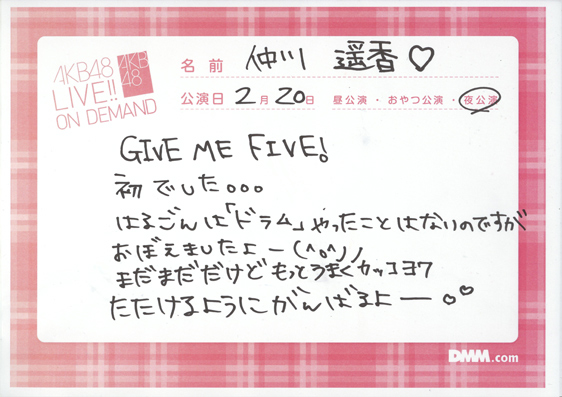 AKB48
LIVE!!
ON DEMAND
AKB
48
名前 仲川 遥香♡
公演日 2月 20日 昼公演・おやつ公演・夜公演
GIVE ME FIVE!
初でした。。。
はるごんは「ドラム」やったことはないのですが
おぼえましたよー(^o^)丿
まだまだだけどもっとうまくカッコヨク
たたけるようにがんばるよー
DMM.com